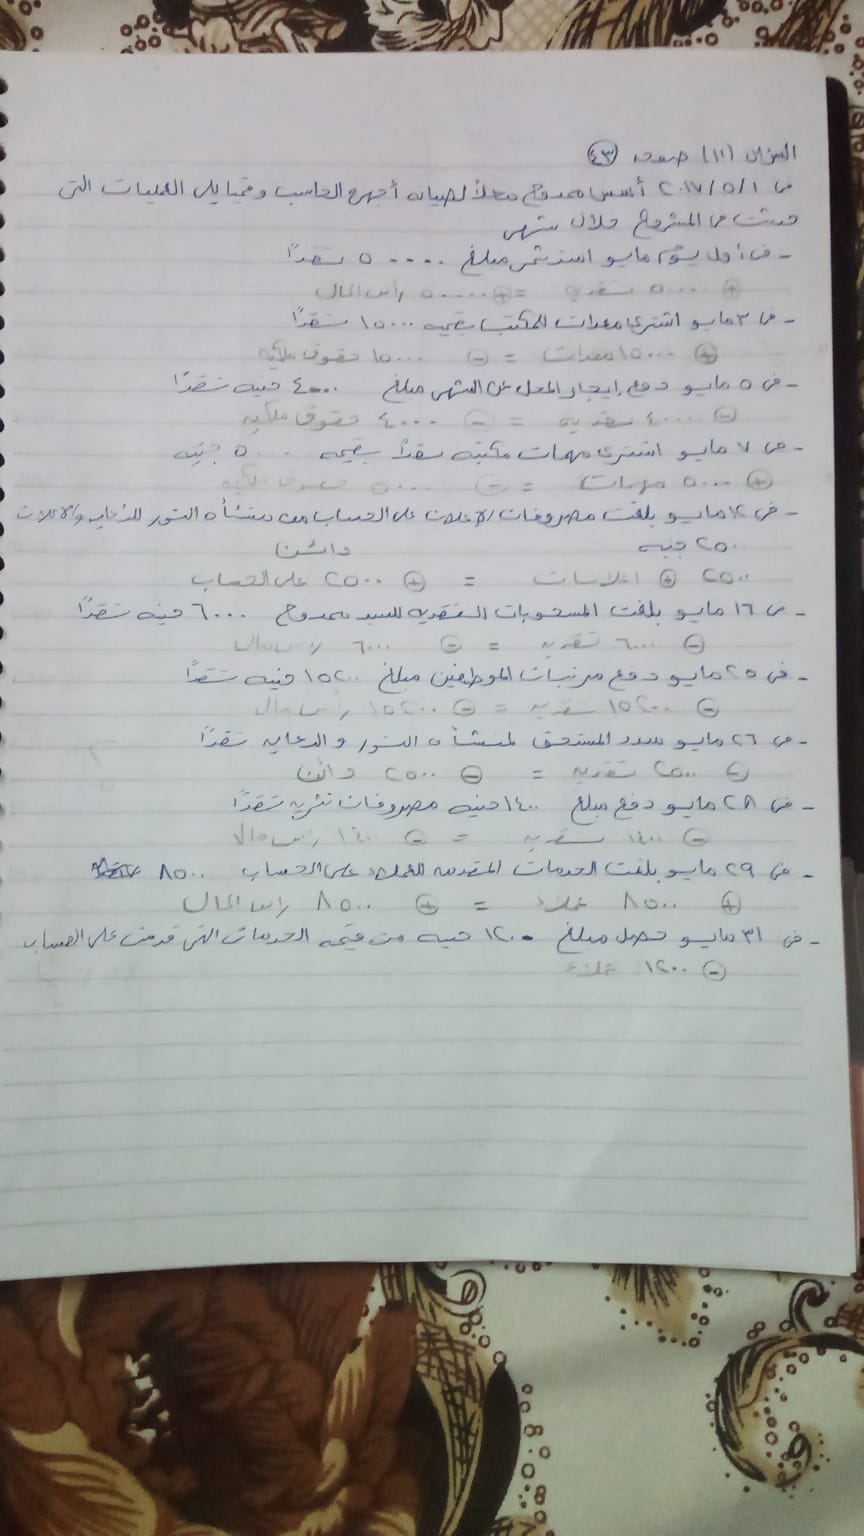 السؤال (١١) صفحه (٤٣)
فى ٢٠١٧/٥/١ أسس ممدوح محلاً لصيانه أجهزة الحاسب وفيما يلى العمليات التى
حدثت فى المشروع خلال شهر
- فى أول يوم مايو استثمر مبلغ ٥٠٠٠٠ نقداً
(+) ٥٠٠٠٠ نقديه = (+) ٥٠٠٠٠ رأس المال
- فى ٣ مايو اشترى معدات للمكتب بقيمه ١٥٠٠٠ نقداً
(+) ١٥٠٠٠ معدات = (-) ١٥٠٠٠ حقوق ملكيه
- فى ٥ مايو دفع إيجار المحل عن الشهر مبلغ ٤٠٠٠ جنيه نقداً
(-) ٤٠٠٠ نقديه = (-) ٤٠٠٠ حقوق ملكيه
- فى ٧ مايو اشترى مهمات مكتبيه نقداً بقيمه ٥٠٠٠ جنيه
(+) ٥٠٠٠ مهمات = (-) ٥٠٠٠ حقوق ملكيه
- فى ١٢ مايو بلغت مصروفات الإعلان على الحساب من منشأه النور للدعايه والاعلان
٢٥٠٠ جنيه دائن
٢٥٠٠ (+) اعلانات = (+) ٢٥٠٠ على الحساب
- فى ١٦ مايو بلغت المسحوبات النقديه للسيد ممدوح ٦٠٠٠ جنيه نقداً
(-) ٦٠٠٠ نقديه = (-) ٦٠٠٠ رأس مال
- فى ٢٥ مايو دفع مرتبات الموظفين مبلغ ١٥٢٠٠ جنيه نقداً
(-) ١٥٢٠٠ نقديه = (-) ١٥٢٠٠ رأس مال
- فى ٢٦ مايو سدد المستحق لمنشأه النور والدعايه نقداً
(-) ٢٥٠٠ نقديه = (-) ٢٥٠٠ دائن
- فى ٢٨ مايو دفع مبلغ ١٤٠٠ جنيه مصروفات نثريه نقداً
(-) ١٤٠٠ نقديه = (-) ١٤٠٠ رأس مال
- فى ٢٩ مايو بلغت الخدمات المقدمه للعملاء على الحساب ٨٥٠٠
(+) ٨٥٠٠ عملاء = (+) ٨٥٠٠ رأس المال
- فى ٣١ مايو حصل مبلغ ١٢٠٠ جنيه من قيمه الخدمات التى قدمت على الحساب
(-) ١٢٠٠ عملاء